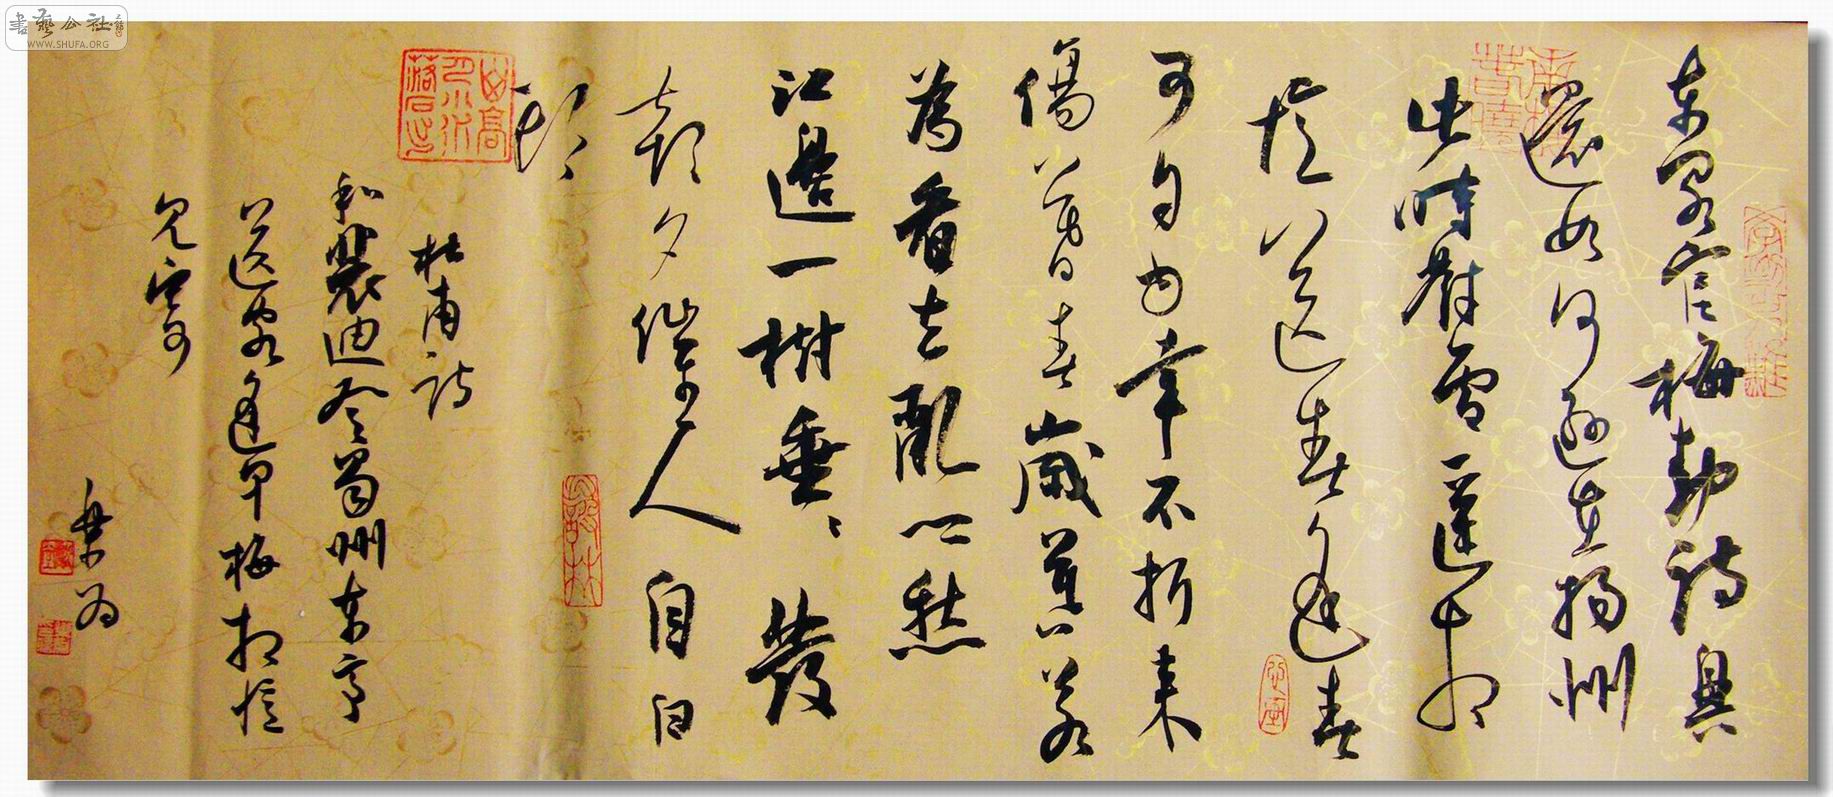 書藝公社
WWW.SHUFA.ORG
东阁官梅動诗興
還如何逊在揚州
此時對雪遥相
憶送春逢春
可自由幸不折来
傷暮春歲暮若
為看去亂心愁
江邊一樹垂垂發
朝夕催人自白
頭
杜甫诗
和裴迪登蜀州东亭
送客逢早梅相憶
見寄